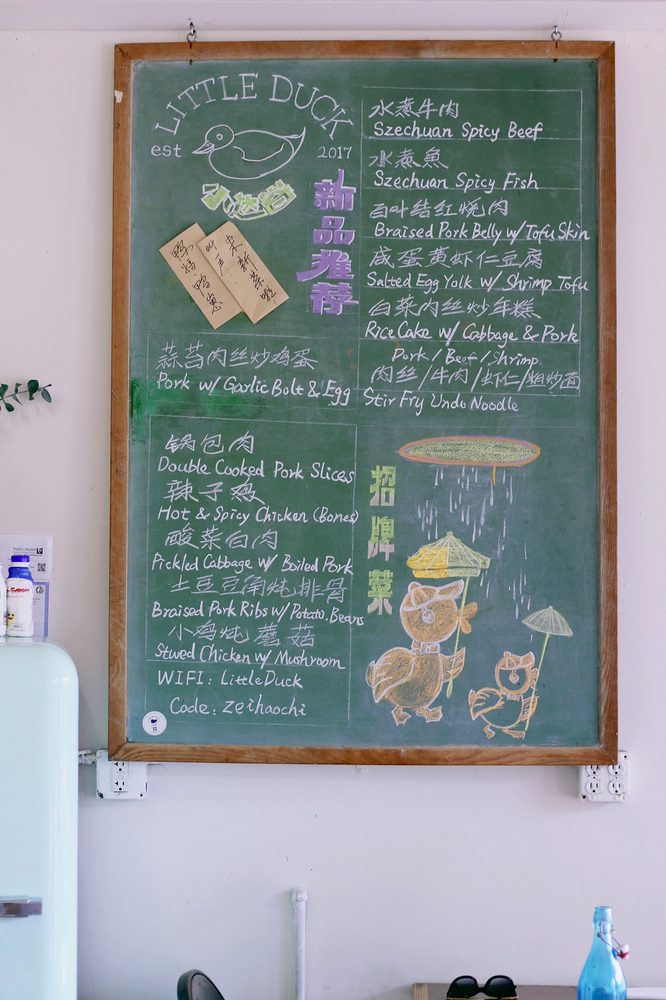 LITTLE DUCK
est 2017
新品推荐
鸭妈鸭崽
来新菜啦
蒜苔肉丝炒鸡蛋
Pork w/ Garlic Bolt & Egg
锅包肉
Double Cooked Pork Slices
辣子鸡
Hot & Spicy Chicken (Bones)
酸菜白肉
Pickled Cabbage w/ Boiled Pork
土豆豆角炖排骨
Braised Pork Ribs w/ Potato.Beans
小鸡炖蘑菇
Stwed Chicken w/ Mushroom
WIFI: LittleDuck
Code: zeihaochi
水煮牛肉
Szechuan Spicy Beef
水煮魚
Szechuan Spicy Fish
百叶结红烧肉
Braised Pork Belly w/ Tofu Skin
咸蛋黄虾仁豆腐
Salted Egg Yolk w/ Shrimp Tofu
白菜肉丝炒年糕
Rice Cake w/ Cabbage & Pork
Pork / Beef / Shrimp
肉丝/牛肉/虾仁/粗炒面
Stir Fry Undo Noodle
招牌菜